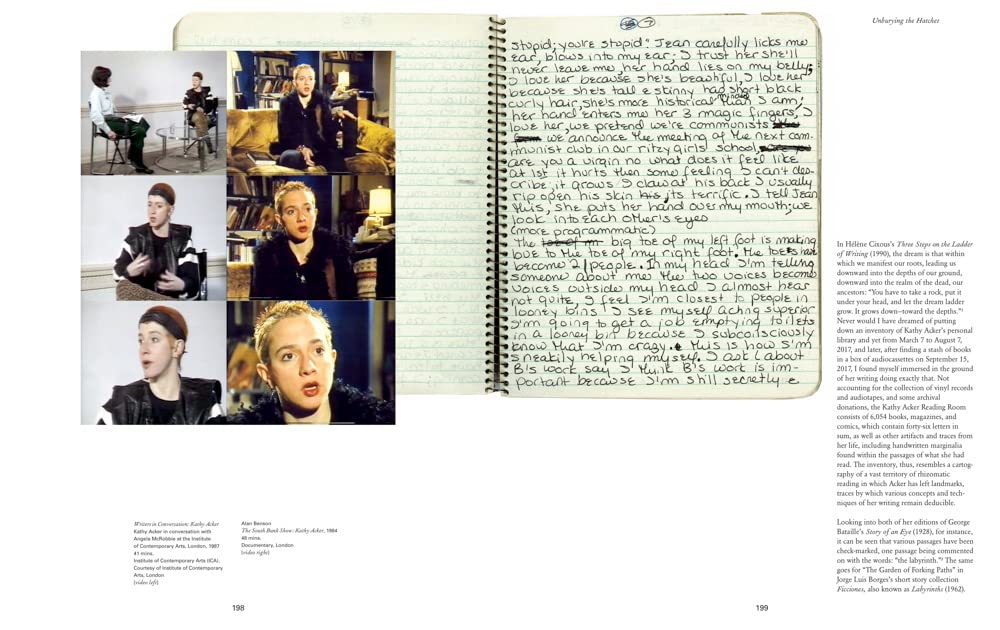 Unburying the Hatchet
stupid; you're stupid? Jean carefully licks me
ear, blows into my ear; I trust her she'll
never leave me, her hand lies on my belly;
I love her because she's beautiful, I love her
because she's tall & skinny had short black
curly hair, she's more historical minded than I am;
her hand enters me her 3 magic fingers, I
love her, we pretend we're communists
we announce the meeting of the next com-
munist club in our ritzy girls' school,
are you a virgin no what does it feel like
at 1st it hurts then some feeling I can't des-
cribe, it grows I claw at his back I usually
rip open his skin his its terrific. I tell Jean
this, she puts her hand over my mouth; we
look into each other's eyes
(more programmatic)
The toe of m big toe of my left foot is making
love to the toe of my right foot. The toes
become 2 people. In my head I'm telling
someone about me the two voices become
voices outside my head I almost hear
not quite, I feel I'm closest to people in
looney bins I see myself acting superior
I'm going to get a job emptying toilets
in a looney bin because I subconsciously
know that I'm crazy. this is how I'm
sneakily helping myself. I ask ( about
B's work say I think B's work is im-
portant because I'm still secretly a
In Hélène Cixous's Three Steps on the Ladder
of Writing (1990), the dream is that within
which we manifest our roots, leading us
downward into the depths of our ground,
downward into the realm of the dead, our
ancestors: “You have to take a rock, put it
under your head, and let the dream ladder
grow. It grows down—toward the depths.”¹
Never would I have dreamed of putting
down an inventory of Kathy Acker's personal
library and yet from March 7 to August 7,
2017, and later, after finding a stash of books
in a box of audiocassettes on September 15,
2017, I found myself immersed in the ground
of her writing doing exactly that. Not
accounting for the collection of vinyl records
and audiotapes, and some archival
donations, the Kathy Acker Reading Room
consists of 6,054 books, magazines, and
comics, which contain forty-six letters in
sum, as well as other artifacts and traces from
her life, including handwritten marginalia
found within the passages of what she had
read. The inventory, thus, resembles a cartog-
raphy of a vast territory of rhizomatic
reading in which Acker has left landmarks,
traces by which various concepts and tech-
niques of her writing remain deducible.
Looking into both of her editions of George
Bataille's Story of an Eye (1928), for instance,
it can be seen that various passages have been
check-marked, one passage being commented
on with the words: “the labyrinth.”² The same
goes for “The Garden of Forking Paths” in
Jorge Luis Borges's short story collection
Ficciones, also known as Labyrinths (1962).
Writers in Conversation: Kathy Acker
Kathy Acker in conversation with
Angela McRobbie at the Institute
of Contemporary Arts, London, 1987
41 mins.
Institute of Contemporary Arts (ICA),
Courtesy of Institute of Contemporary
Arts, London
(video left)
Alan Benson
The South Bank Show: Kathy Acker, 1984
48 mins.
Documentary, London
(video right)
198
199